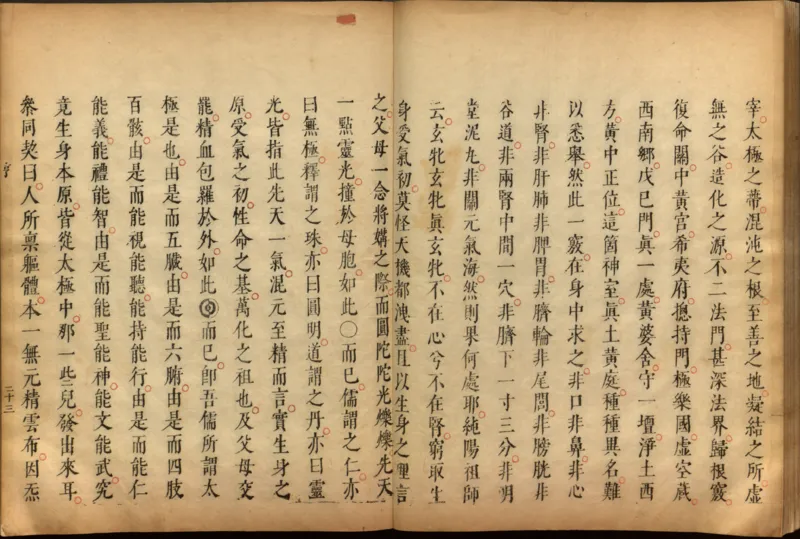 宰太極之蒂混沌之根至善之地凝結之所虛
無之谷造化之源不二法門甚深法界歸根竅
復命關中黃宮希夷府揔持門極樂國虛空藏
西南鄉戊巳門真一處黃婆舍守一壇淨土西
方黃中正位這箇神室真土黃庭種種異名難
以悉舉然此一竅在身中求之非口非鼻非心
非腎非肝非肺非脾胃非臍輪非尾閭非膀胱非
谷道非兩腎中間一穴非臍下一寸三分非明
堂泥丸非關元氣海然則果何處耶純陽祖師
云玄牝玄牝真玄牝不在心兮不在腎窮取生
身受氣初莫怪天機都洩盡且以生身之理言
之父母一念將媾之際而圓陀陀光爍爍先天
一點靈光撞於母胞如此〇而已儒謂之仁亦
曰無極釋謂之珠亦曰圓明道謂之丹亦曰靈
光皆指此先天一氣混元至精而言實生身之
原受氣之初性命之基萬化之祖也及父母交
罷精血包羅於外如此◎而已即吾儒所謂太
極是也由是而五臟由是而六腑由是而四肢
百骸由是而能視能聽能持能行由是而能仁
能義能禮能智由是而能聖能神能文能武究
竟生身本原皆從太極中那一些兒發出來耳
叅同契曰人所禀軀體本一無元精雲布因炁
二十三